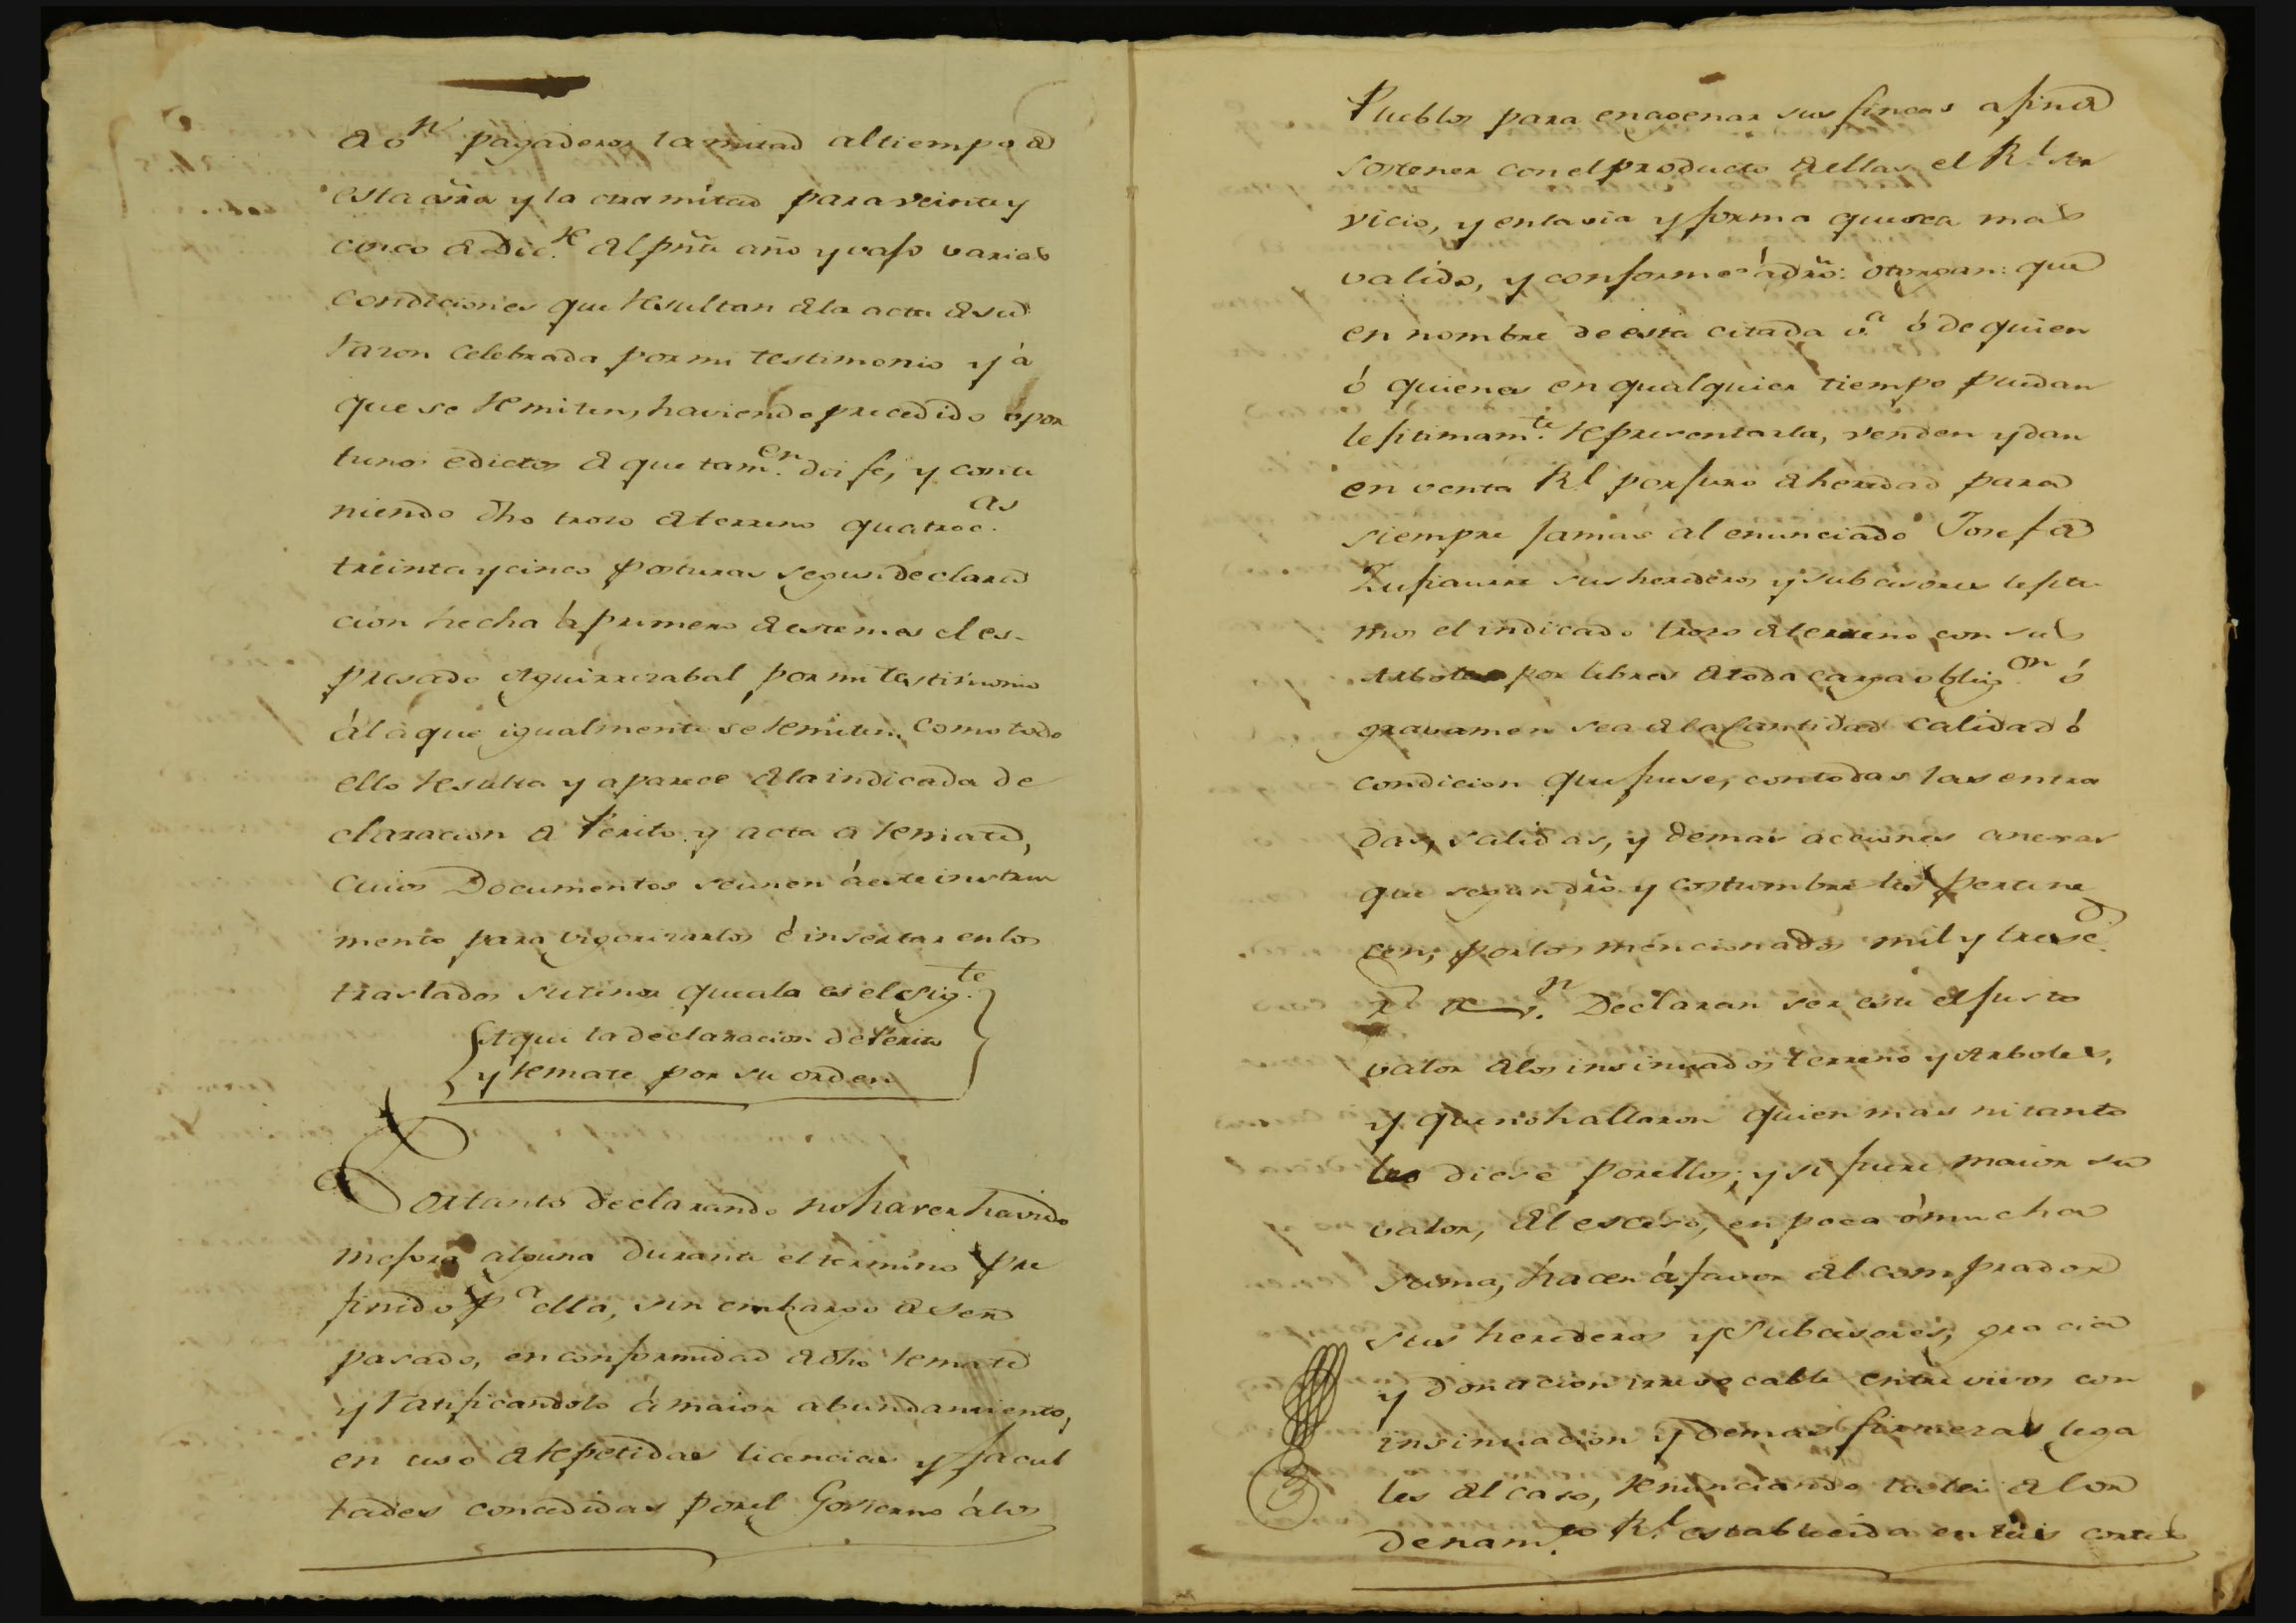 de v.n pagaderos la mitad al tiempo de
esta esña y la otra mitad para veinte y
cinco de Dic.re del pnte año y vajo varias
condiciones que resultan de la acta de su
razon celebrada por mi testimonio y á
que se remiten, haviendo precedido opor
tunos edictos de que tam.en doi fe, y conte
niendo dho trozo de terreno quatroc.as
treinta y cinco posturas segun declara
cion hecha á primero de este mes el es-
presado Aguirrezabal por mi testimonio
á la que igualmente se remiten, como todo
ello resulta y aparece de la indicada de
claracion de Perito y acta de remate,
cuios Documentos se unen á este instru
mento para vigorizarlos é insertar en los
traslados su tenor que a la es el sig.te
Aqui la declaracion de Perito
y remate por su orden
Por tanto declarando no haver havido
mejora alguna durante el termino pre
finido p.a ella, sin embargo de ser
pasado, en conformidad de dho remate
y ratificandolo á maior abundamiento,
en uso de repetidas licencias y facul
tades concedidas por el Govierno á los
Pueblos para enagenar sus fincas a fin de
sostener con el producto de ellas el R.l ser
vicio, y en la via y forma que sea mas
valido, y conforme á dro: otorgan: que
en nombre de esta citada v.a ó de quien
ó quienes en qualquier tiempo puedan
lejitimam.te representarla, venden y dan
en venta R.l por juro de heredad para
siempre jamas al enunciado Josef de
Zufiaurre sus herederos y subcesores lejiti
mos el indicado trozo de terreno con sus
Arboles por libres de toda carga oblig.on ó
gravamen sea de la cantidad calidad ó
condicion que fuese, con todas las entra
das, salidas, y demas acciones anexas
que segun dro y costumbre les pertene
cen; por los mencionados mil y tresc.s
r.s de v.n Declaran ser este el justo
valor de los insinuados terreno y Arboles,
y que no hallaron quien mas ni tanto
les diese por ellos; y si fuere maior su
valor, del esceso, en poca ó mucha
suma, hacen á favor del comprador
sus herederos y subcesores, gracia
y donacion irrevocable entre vivos con
insinuacion y demas firmezas lega
les del caso, renunciando la lei del or
denam.to R.l establecida en las cortes